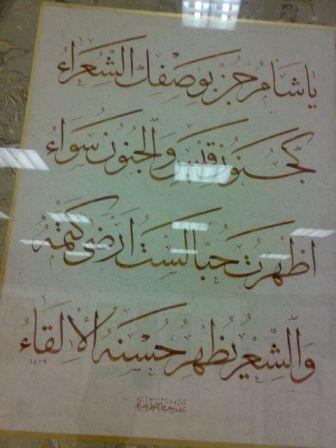 يا شام جن بوصفك الشعراء
كجنون قيس والجنون سواء
اظهرت حبا لست ارضى كتمه
والشعر يظهر حسنه الإلقاء
١٤٢٩